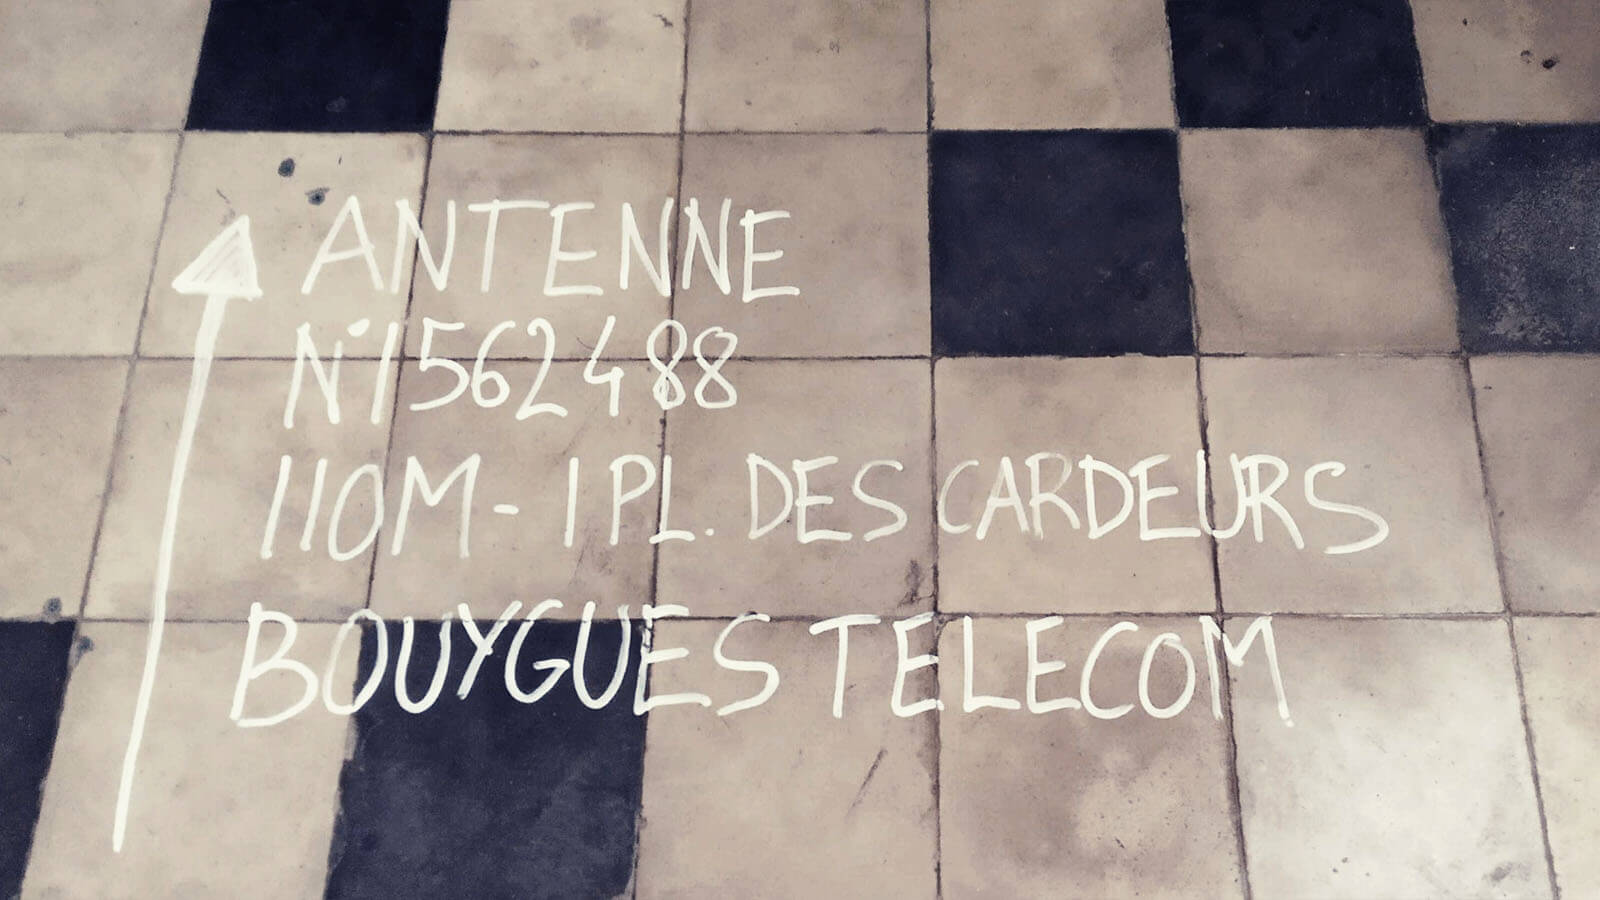 ANTENNE
N°1562488
110M - 1 PL. DES CARDEURS
BOUYGUES TELECOM